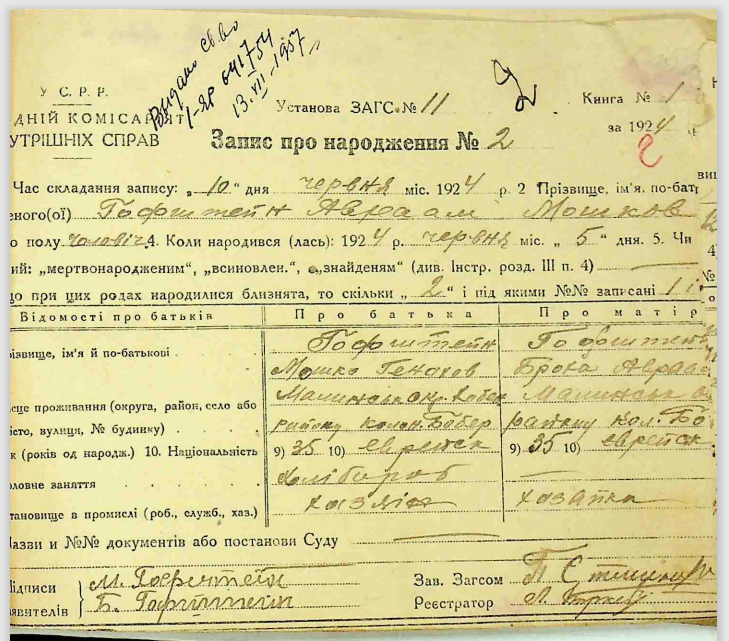 Выдано св-во
I-ЯР 041754
13.VII-1957
У С. Р. Р.
ДНІЙ КОМІСАРІЯТ
УТРІШНІХ СПРАВ
Установа ЗАГС № 11
Книга № 1
за 1924 р
Запис про народження № 2
2
Час складання запису: „ 10 “ дня червня міс. 1924 р. 2 Прізвище, ім'я, по-бать
еного(ої) Гофштейн Авраам Мошков
о полу чоловіч. 4. Коли народився (лась): 1924 р. червня міс. „ 5 “ дня. 5. Чи
ий: „мертвонародженим“, „всиновлен.“, „знайденям“ (див. Інстр. розд. III п. 4)
що при цих родах народилися близнята, то скільки „ 2 “ і під якими №№ записані 1 і
Відомості про батьків
Про батька
Про матір
різвище, ім'я й по-батькові
Гофштейн
Мошко Генахов
Гофштейн
Броха Авраам
ісце проживання (округа, район, село або
істо, вулиця, № будинку)
Малинська
району колон. Бобер
Малинська
району кол. Бо
к (років од народж.) 10. Національність
9) 35 10) еврейск
9) 35 10) еврейск
ловне заняття
Хлібороб
—
тановище в промислі (роб., служб., хаз.)
хазяїн
хазяйка
Назви и №№ документів або постанови Суду
ідписи
аявителів
М. Гофштейн
Б. Гофштейн
Зав. Загсом
Реєстратор